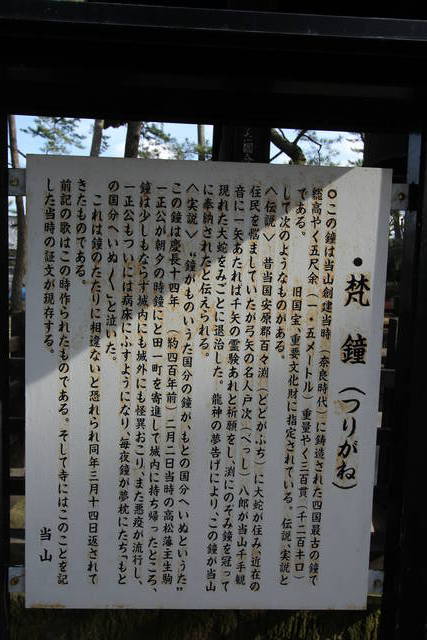 ・梵鐘(つりがね)
○この鐘は当山創建当時(奈良時代)に鋳造された四国最古の鐘で
総高やく五尺余(一・五メートル)重量やく三百貫(千二百キロ)
である。　旧国宝、重要文化財に指定されている。伝説、実説と
して次のようなものがある。
〈伝説〉　昔当国安原郡百々渕(とどがふち)に大蛇が住み、近在の
住民を悩ましていたが弓矢の名人戸次(べっし)八郎が当山千手観
音に一矢あたれば千矢の霊験あれと祈願をし、渕にのぞみ鐘を冠って
現れた大蛇をみごとに退治した。龍神の夢告げにより、この鐘が当山
に奉納されたと伝えられる。
〈実説〉　"鐘がものいうた国分の鐘が、もとの国分へいぬというた"
この鐘は慶長十四年　(約四百年前)二月二日当時の高松藩主生駒
一正公が朝夕の時鐘にと田一町を寄進して城内に持ち帰ったところ、
鐘は少しもならず城内にも城外にも怪異おこり、また悪疫が流行し、
一正公もついには病床にふすようになり、毎夜鐘が夢枕にたち、もと
の国分へいぬ〱と泣いた。
これは鐘のたたりに相違ないと恐れられ同年三月十四日返されて
きたものである。
前記の歌はこの時作られたものである。そして寺にはこのことを記
した当時の証文が現存する。
当山